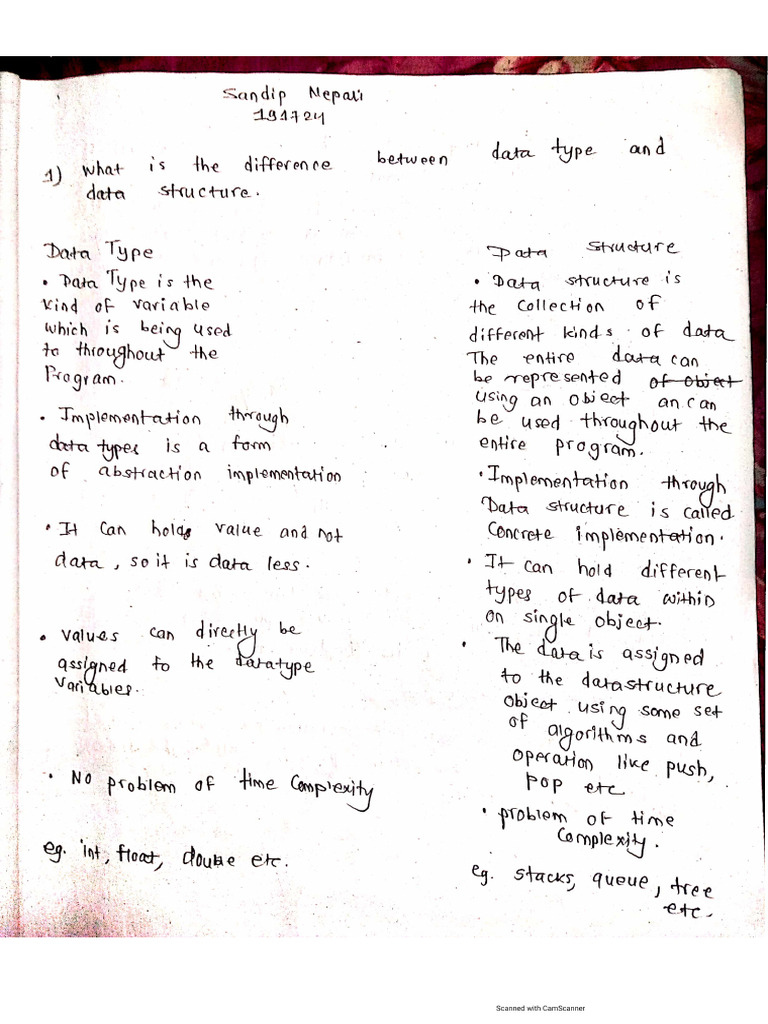 Sandip Nepali
191724
1) What is the difference between data type and
data structure.
Data Type
• Data Type is the
kind of variable
which is being used
to throughout the
Program.
• Implementation through
data types is a form
of abstraction implementation
• It can holds value and not
data, so it is data less.
• values can directly be
assigned to the datatype
variables.
• No problem of time complexity
eg. int, float, double etc.
Data structure
• Data structure is
the collection of
different kinds of data
The entire data can
be represented of object
using an object an can
be used throughout the
entire program.
• Implementation through
Data structure is called
concrete implementation.
• It can hold different
types of data within
on single object.
• The data is assigned
to the datastructure
object using some set
of algorithms and
operation like push,
pop etc
• problem of time
complexity.
eg. stacks, queue, tree
etc.
Scanned with CamScanner